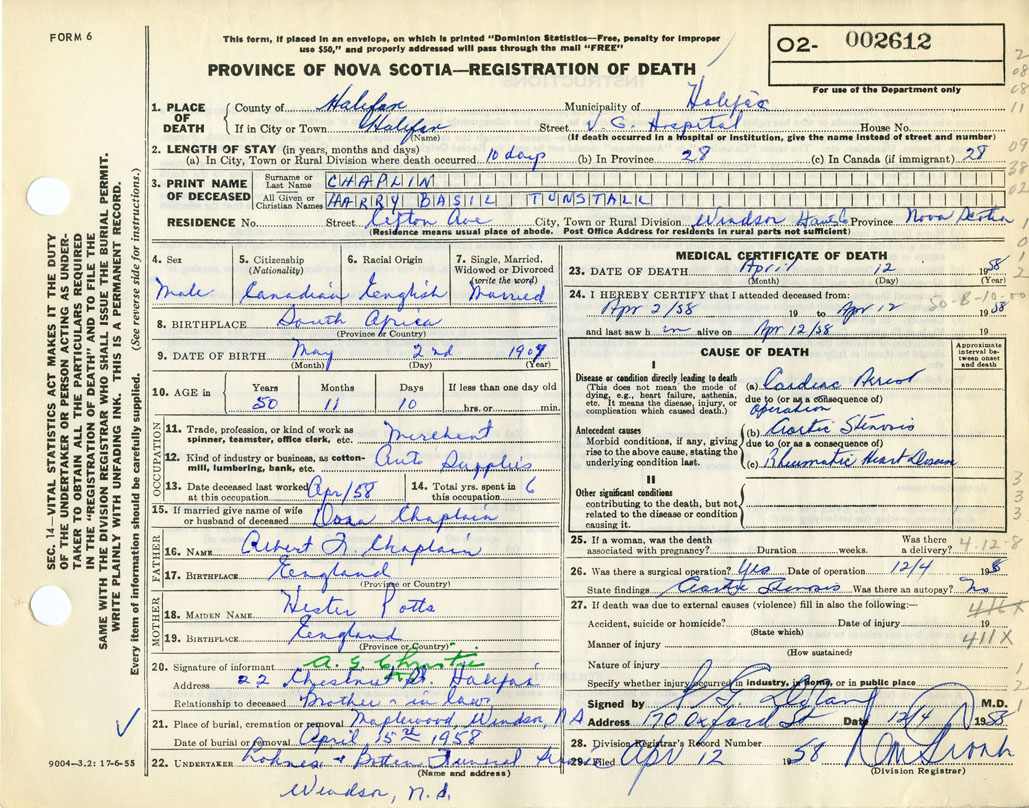 FORM 6
This form, if placed in an envelope, on which is printed "Dominion Statistics—Free, penalty for improper
use $50," and properly addressed will pass through the mail "FREE"
O2- 002612
For use of the Department only
PROVINCE OF NOVA SCOTIA—REGISTRATION OF DEATH
1. PLACE OF DEATH County of Halifax Municipality of Halifax
If in City or Town Halifax (Name) Street V. G. Hospital House No.
(If death occurred in a hospital or institution, give the name instead of street and number)
2. LENGTH OF STAY (in years, months and days)
(a) In City, Town or Rural Division where death occurred 10 days (b) In Province 28 (c) In Canada (if immigrant) 28
3. PRINT NAME OF DECEASED Surname or Last Name CHAPLIN
All Given or Christian Names HARRY BASIL TUNSTALL
RESIDENCE No. Street Ave City, Town or Rural Division Windsor Hants Co Province Nova Scotia
(Residence means usual place of abode. Post Office Address for residents in rural parts not sufficient)
4. Sex Male
5. Citizenship (Nationality) Canadian
6. Racial Origin English
7. Single, Married, Widowed or Divorced (write the word) Married
8. BIRTHPLACE South Africa
(Province or Country)
9. DATE OF BIRTH May 2nd 1907
(Month) (Day) (Year)
10. AGE in Years 50 Months 11 Days 10 If less than one day old hrs. or min.
OCCUPATION
11. Trade, profession, or kind of work as spinner, teamster, office clerk, etc. Merchant
12. Kind of industry or business, as cotton-mill, lumbering, bank, etc. Auto Supplies
13. Date deceased last worked at this occupation Apr/58
14. Total yrs. spent in this occupation 6
15. If married give name of wife or husband of deceased Dora Chaplain
FATHER
16. NAME Albert Chaplain
17. BIRTHPLACE England
(Province or Country)
MOTHER
18. MAIDEN NAME Hester Potts
19. BIRTHPLACE England
(Province or Country)
20. Signature of informant A. G. Christie
Address 22 Chestnut St. Halifax
Relationship to deceased Brother-in law
21. Place of burial, cremation or removal Maplewood, Windsor, N.S.
Date of burial or removal April 15th 1958
22. UNDERTAKER Funeral
(Name and address)
Windsor, N.S.
9004—3.2: 17-6-55
MEDICAL CERTIFICATE OF DEATH
23. DATE OF DEATH April 12 1958
(Month) (Day) (Year)
24. I HEREBY CERTIFY that I attended deceased from:
Apr 2/58 19 to Apr 12 1958
and last saw him alive on Apr 12/58 19
50-8-10-00
CAUSE OF DEATH
Approximate interval between onset and death
I
Disease or condition directly leading to death
(This does not mean the mode of dying, e.g., heart failure, asthenia, etc. It means the disease, injury, or complication which caused death.)
(a) Cardiac Arrest
due to (or as a consequence of)
operation
Antecedent causes
Morbid conditions, if any, giving rise to the above cause, stating the underlying condition last.
(b) Aortic Stenosis
due to (or as a consequence of)
(c) Rheumatic Heart Disease
II
Other significant conditions
contributing to the death, but not related to the disease or condition causing it.
25. If a woman, was the death associated with pregnancy? Duration weeks. Was there a delivery?
4.12-8
26. Was there a surgical operation? Yes Date of operation 12/4 1958
State findings Aortic Stenosis Was there an autopsy? No
27. If death was due to external causes (violence) fill in also the following:—
Accident, suicide or homicide? Date of injury 19
(State which)
Manner of injury 411X
(How sustained)
Nature of injury
Specify whether injury occurred in industry, in home, or in public place
Signed by M.D.
Address 170 Oxford St Date 12/4 1958
28. Division Registrar's Record Number
29. Filed Apr 12 1958
(Division Registrar)
SEC. 14—VITAL STATISTICS ACT MAKES IT THE DUTY
OF THE UNDERTAKER OR PERSON ACTING AS UNDER-
TAKER TO OBTAIN ALL THE PARTICULARS REQUIRED
IN THE "REGISTRATION OF DEATH" AND TO FILE THE
SAME WITH THE DIVISION REGISTRAR WHO SHALL ISSUE THE BURIAL PERMIT.
WRITE PLAINLY WITH UNFADING INK. THIS IS A PERMANENT RECORD.
Every item of information should be carefully supplied. (See reverse side for instructions.)